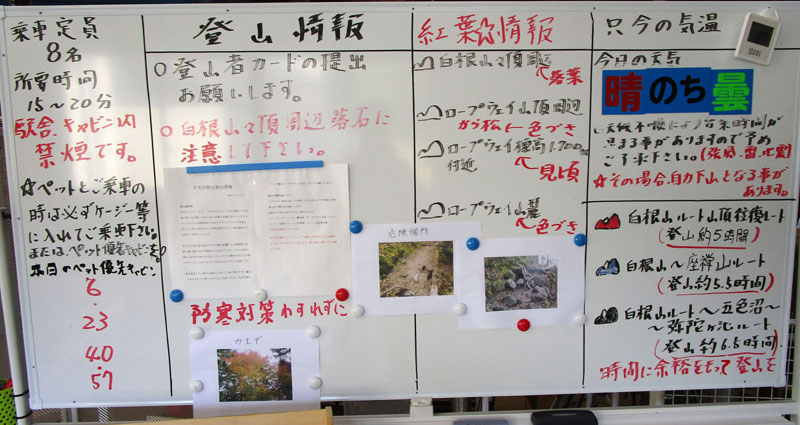 乗車定員
8名
所要時間
15～20分
駅舎、キャビン内
禁煙です。
☆ペットとご乗車の
時は必ずケージー等
に入れてご乗車下さい。
または、ペット優先キャビンを
本日のペット優先キャビン
6
23
40
57
登山情報
○登山者カードの提出
お願いします。
○白根山々頂周辺落石に
注意して下さい。
防寒対策わすれずに
カエデ
紅葉情報
白根山々頂周辺
落葉
ロープウェイ山頂周辺
から松 色づき
ロープウェイ標高1,700m
付近
見頃
ロープウェイ山麓
色づき
危険個所
只今の気温
今日の天気
晴のち曇
止まる事がありますので予め
ご了承下さい。(強風・雷・地震)
☆その場合、自力下山となる事が
あります。
白根山ルート山頂往復ルート
(登山約5時間)
白根山～座禅山ルート
(登山約5.5時間)
白根山ルート～五色沼～
～弥陀ヶ池ルート
(登山約6.5時間)
時間に余裕をもって登山を